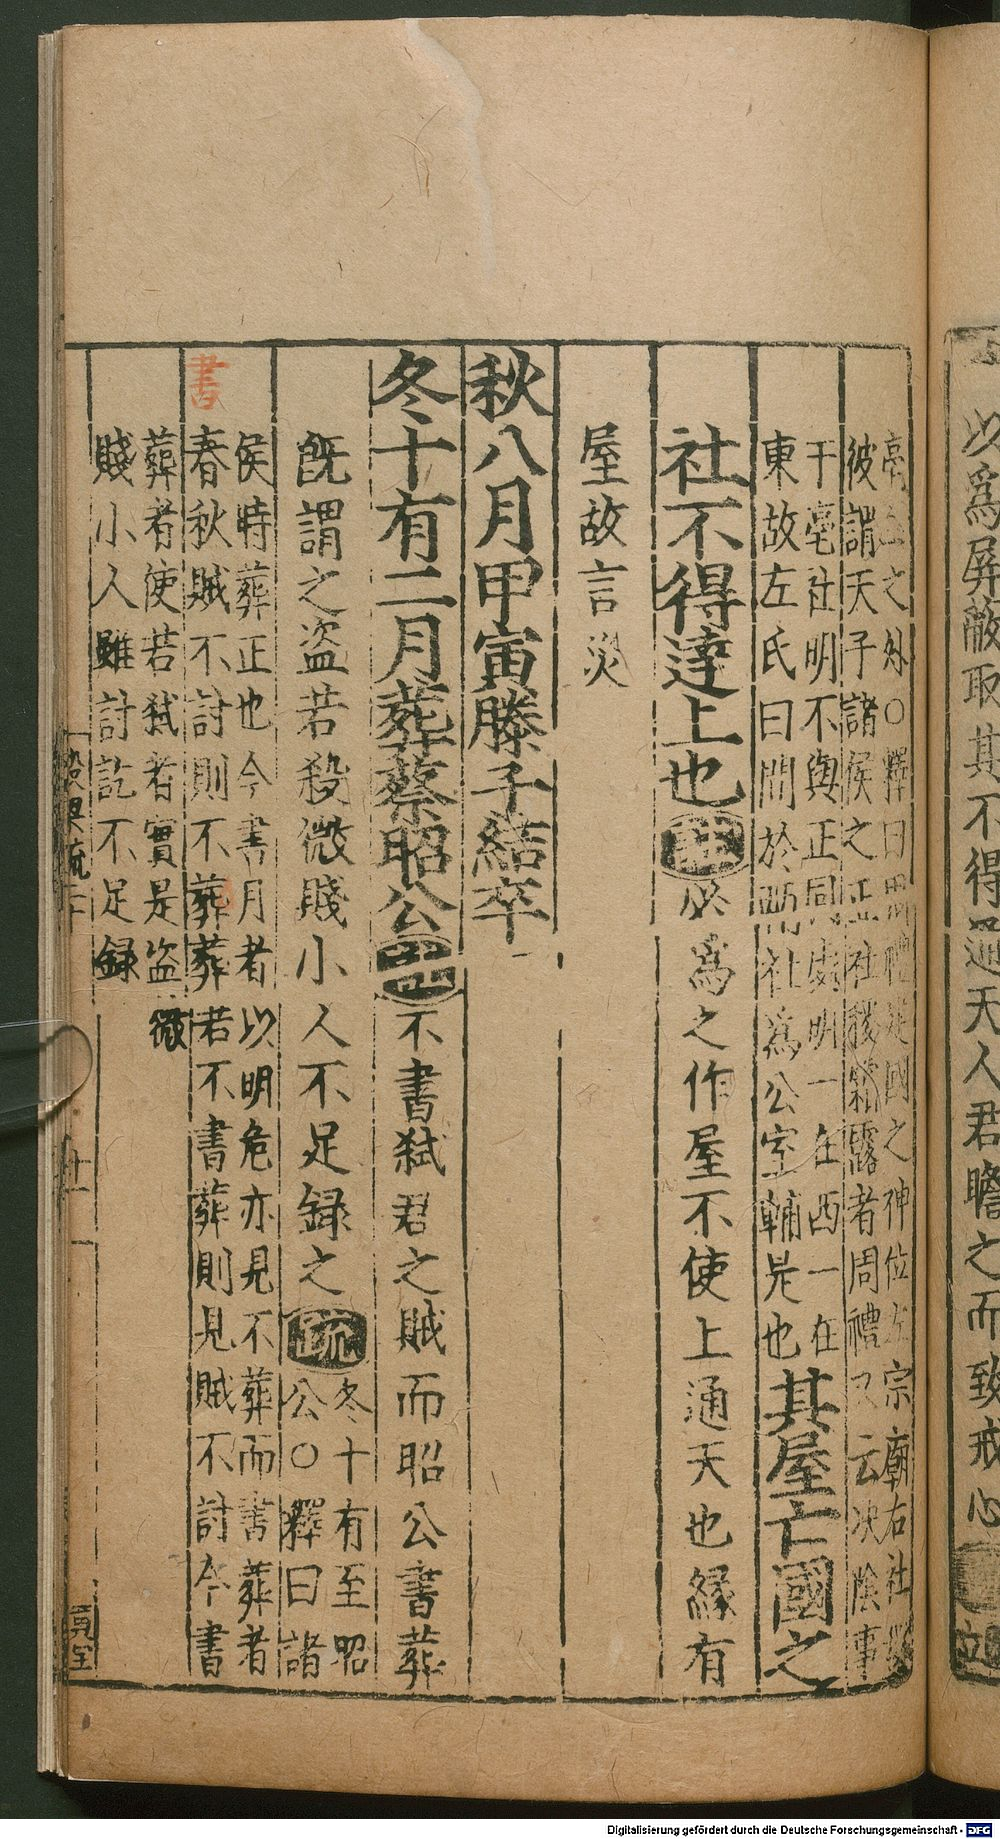 以爲屏蔽取其不得通天人君瞻之而致戒心
之外○釋曰周禮建國之神位左宗廟右社稷
彼謂天子諸侯之正社稷霜露者周禮又云决陰事
于亳社明不與正同處明一在西一在
東故左氏曰間於兩社爲公室輔是也其屋亡國之
社不得達上也註必爲之作屋不使上通天也緣有
屋故言災
秋八月甲寅滕子結卒
冬十有二月葬蔡昭公註不書弑君之賊而昭公書葬
旣謂之盗若殺微賤小人不足録之疏冬十有至昭
公○釋曰諸
侯時葬正也今書月者以明危亦見不葬而書葬者
書
春秋賊不討則不葬葬若不書葬則見賊不討今書
葬者使若弑者實是盗微
賤小人雖討訖不足録